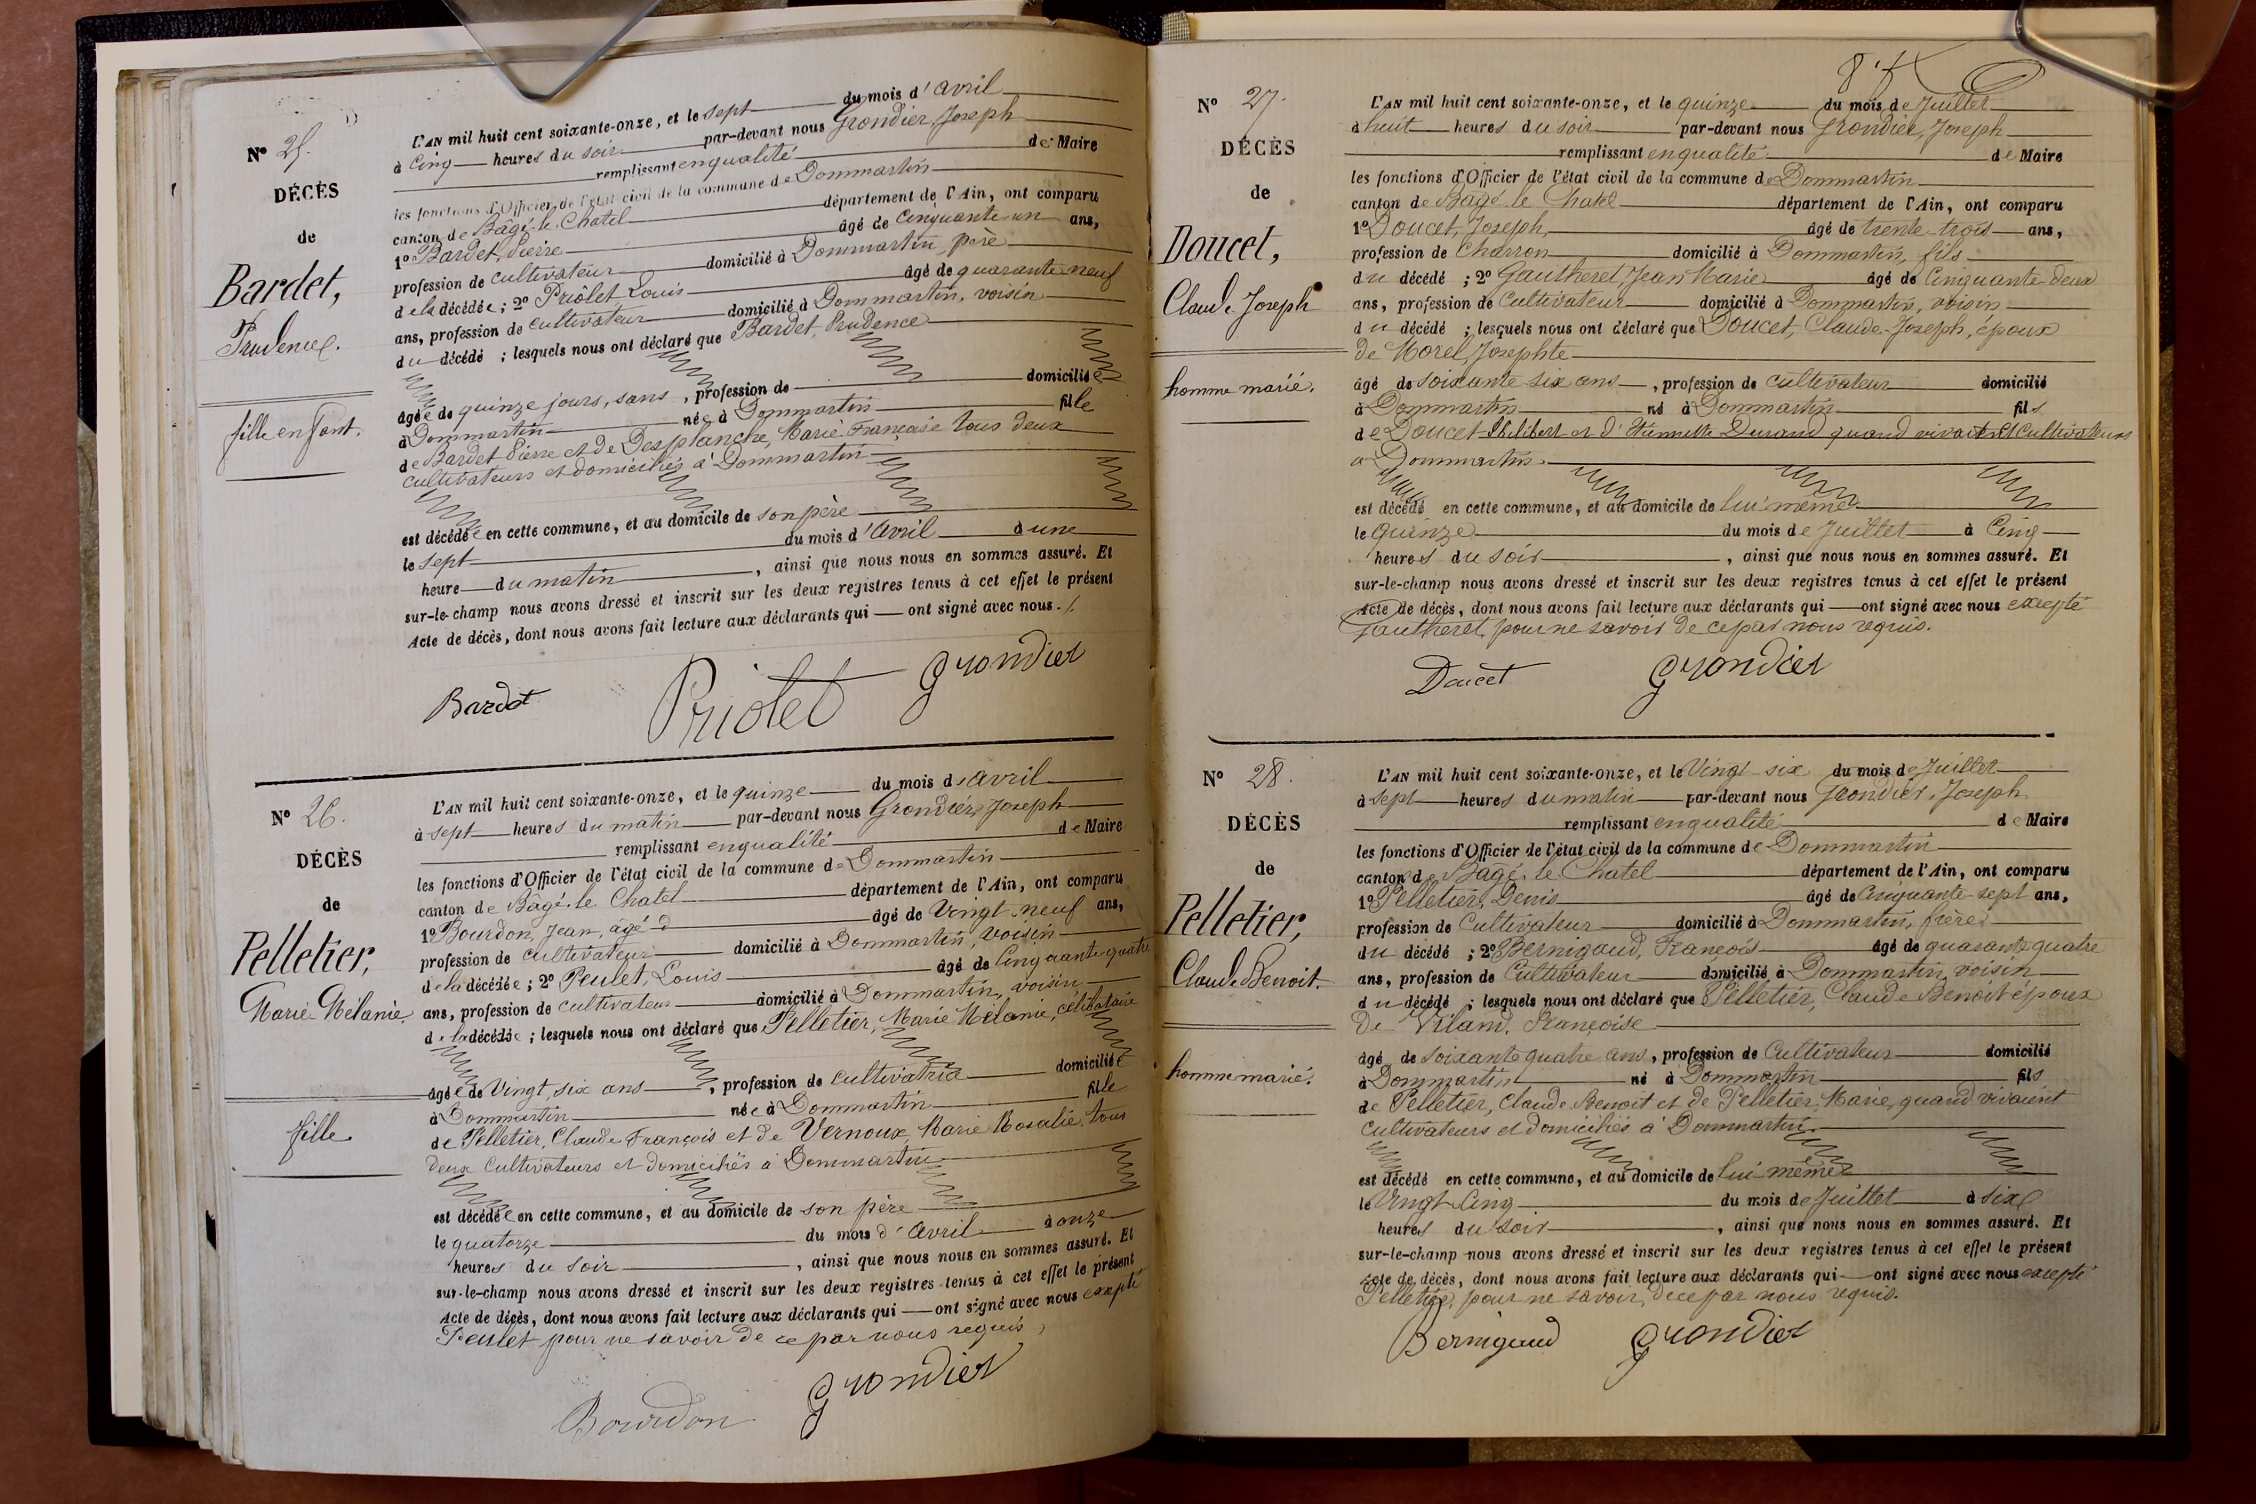 N° 25.
DÉCÈS
de
Bardet,
Prudence.
fille enfant.
L'AN mil huit cent soixante-onze, et le sept du mois d'avril
à Cinq heures du soir par-devant nous Grondier, Joseph
remplissant en qualité de Maire
les fonctions d'Officier de l'état civil de la commune de Dommartin
canton de Bâgé-le-Chatel département de l'Ain, ont comparu
1° Bardet, Pierre âgé de Cinquante un ans,
profession de cultivateur domicilié à Dommartin, père
de la décédée ; 2° Priôlet, Louis âgé de quarante neuf
ans, profession de cultivateur domicilié à Dommartin, voisin
du décédé ; lesquels nous ont déclaré que Bardet, Prudence
âgée de quinze jours, sans , profession de domiciliée
à Dommartin née à Dommartin fille
de Bardet Pierre et de Desplanche, Marie Françoise tous deux
cultivateurs et domiciliés à Dommartin
est décédée en cette commune, et au domicile de son père
le sept du mois d'avril à une
heure du matin , ainsi que nous nous en sommes assuré. Et
sur-le-champ nous avons dressé et inscrit sur les deux registres tenus à cet effet le présent
Acte de décès, dont nous avons fait lecture aux déclarants qui ont signé avec nous ./.
Bardet Priolet Grondier
N° 26.
DÉCÈS
de
Pelletier,
Marie Mélanie.
fille
L'AN mil huit cent soixante-onze, et le quinze du mois d'avril
à sept heures du matin par-devant nous Grondier, Joseph
remplissant en qualité de Maire
les fonctions d'Officier de l'état civil de la commune de Dommartin
canton de Bâgé-le-Chatel département de l'Ain, ont comparu
1° Bourdon, Jean, âgé d âgé de Vingt-neuf ans,
profession de cultivateur domicilié à Dommartin, voisin
de la décédée ; 2° Peulet, Louis âgé de Cinquante quatre
ans, profession de cultivateur domicilié à Dommartin, voisin
de la décédée ; lesquels nous ont déclaré que Pelletier, Marie Mélanie, célibataire
âgée de Vingt six ans , profession de cultivatrice domiciliée
à Dommartin née à Dommartin fille
de Pelletier, Claude François et de Vernoux, Marie Rosalie, tous
deux cultivateurs et domiciliés à Dommartin
est décédée en cette commune, et au domicile de son père
le quatorze du mois d'avril à onze
heures du soir , ainsi que nous nous en sommes assuré. Et
sur-le-champ nous avons dressé et inscrit sur les deux registres tenus à cet effet le présent
Acte de décès, dont nous avons fait lecture aux déclarants qui ont signé avec nous excepté
Peulet pour ne savoir de ce par nous requis
Bourdon Grondier
N° 27.
DÉCÈS
de
Doucet,
Claude Joseph
homme marié.
L'AN mil huit cent soixante-onze, et le quinze du mois de Juillet
à huit heures du soir par-devant nous Grondier, Joseph
remplissant en qualité de Maire
les fonctions d'Officier de l'état civil de la commune de Dommartin
canton de Bâgé-le-Chatel département de l'Ain, ont comparu
1° Doucet, Joseph, âgé de trente-trois ans,
profession de Charron domicilié à Dommartin, fils
du décédé ; 2° Gautheret, Jean Marie âgé de Cinquante-deux
ans, profession de cultivateur domicilié à Dommartin, voisin
du décédé ; lesquels nous ont déclaré que Doucet, Claude-Joseph, époux
de Morel, Josephte
âgé de soixante six ans , profession de cultivateur domicilié
à Dommartin né à Dommartin fils
de Doucet Philibert et d'Etiennette Durand quand vivaient cultivateurs
à Dommartin.
est décédé en cette commune, et au domicile de lui-même
le quinze du mois de Juillet à Cinq
heures du soir , ainsi que nous nous en sommes assuré. Et
sur-le-champ nous avons dressé et inscrit sur les deux registres tenus à cet effet le présent
Acte de décès, dont nous avons fait lecture aux déclarants qui ont signé avec nous excepté
Gautheret, pour ne savoir de ce par nous requis.
Doucet Grondier
N° 28.
DÉCÈS
de
Pelletier,
Claude Benoit.
homme marié.
L'AN mil huit cent soixante-onze, et le Vingt-six du mois de Juillet
à sept heures du matin par-devant nous Grondier, Joseph
remplissant en qualité de Maire
les fonctions d'Officier de l'état civil de la commune de Dommartin
canton de Bâgé-le-Chatel département de l'Ain, ont comparu
1° Pelletier, Denis âgé de Cinquante-sept ans,
profession de Cultivateur domicilié à Dommartin, frère
du décédé ; 2° Bernigaud, François âgé de quarante quatre
ans, profession de Cultivateur domicilié à Dommartin, voisin
du décédé ; lesquels nous ont déclaré que Pelletier, Claude Benoit époux
De Viland, Françoise
âgé de soixante quatre ans, profession de Cultivateur domicilié
à Dommartin né à Dommartin fils
de Pelletier, Claude Benoit et de Pelletier, Marie, quand vivaient
cultivateurs et domiciliés à Dommartin
est décédé en cette commune, et au domicile de lui même
le Vingt Cinq du mois de Juillet à six
heures du soir , ainsi que nous nous en sommes assuré. Et
sur-le-champ nous avons dressé et inscrit sur les deux registres tenus à cet effet le présent
acte de décès, dont nous avons fait lecture aux déclarants qui ont signé avec nous excepté
Pelletier, pour ne savoir, de ce par nous requis.
Bernigaud Grondier